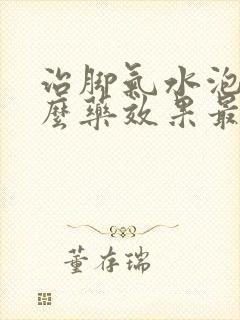 治脚氣水泡
麽藥效果最
董存瑞